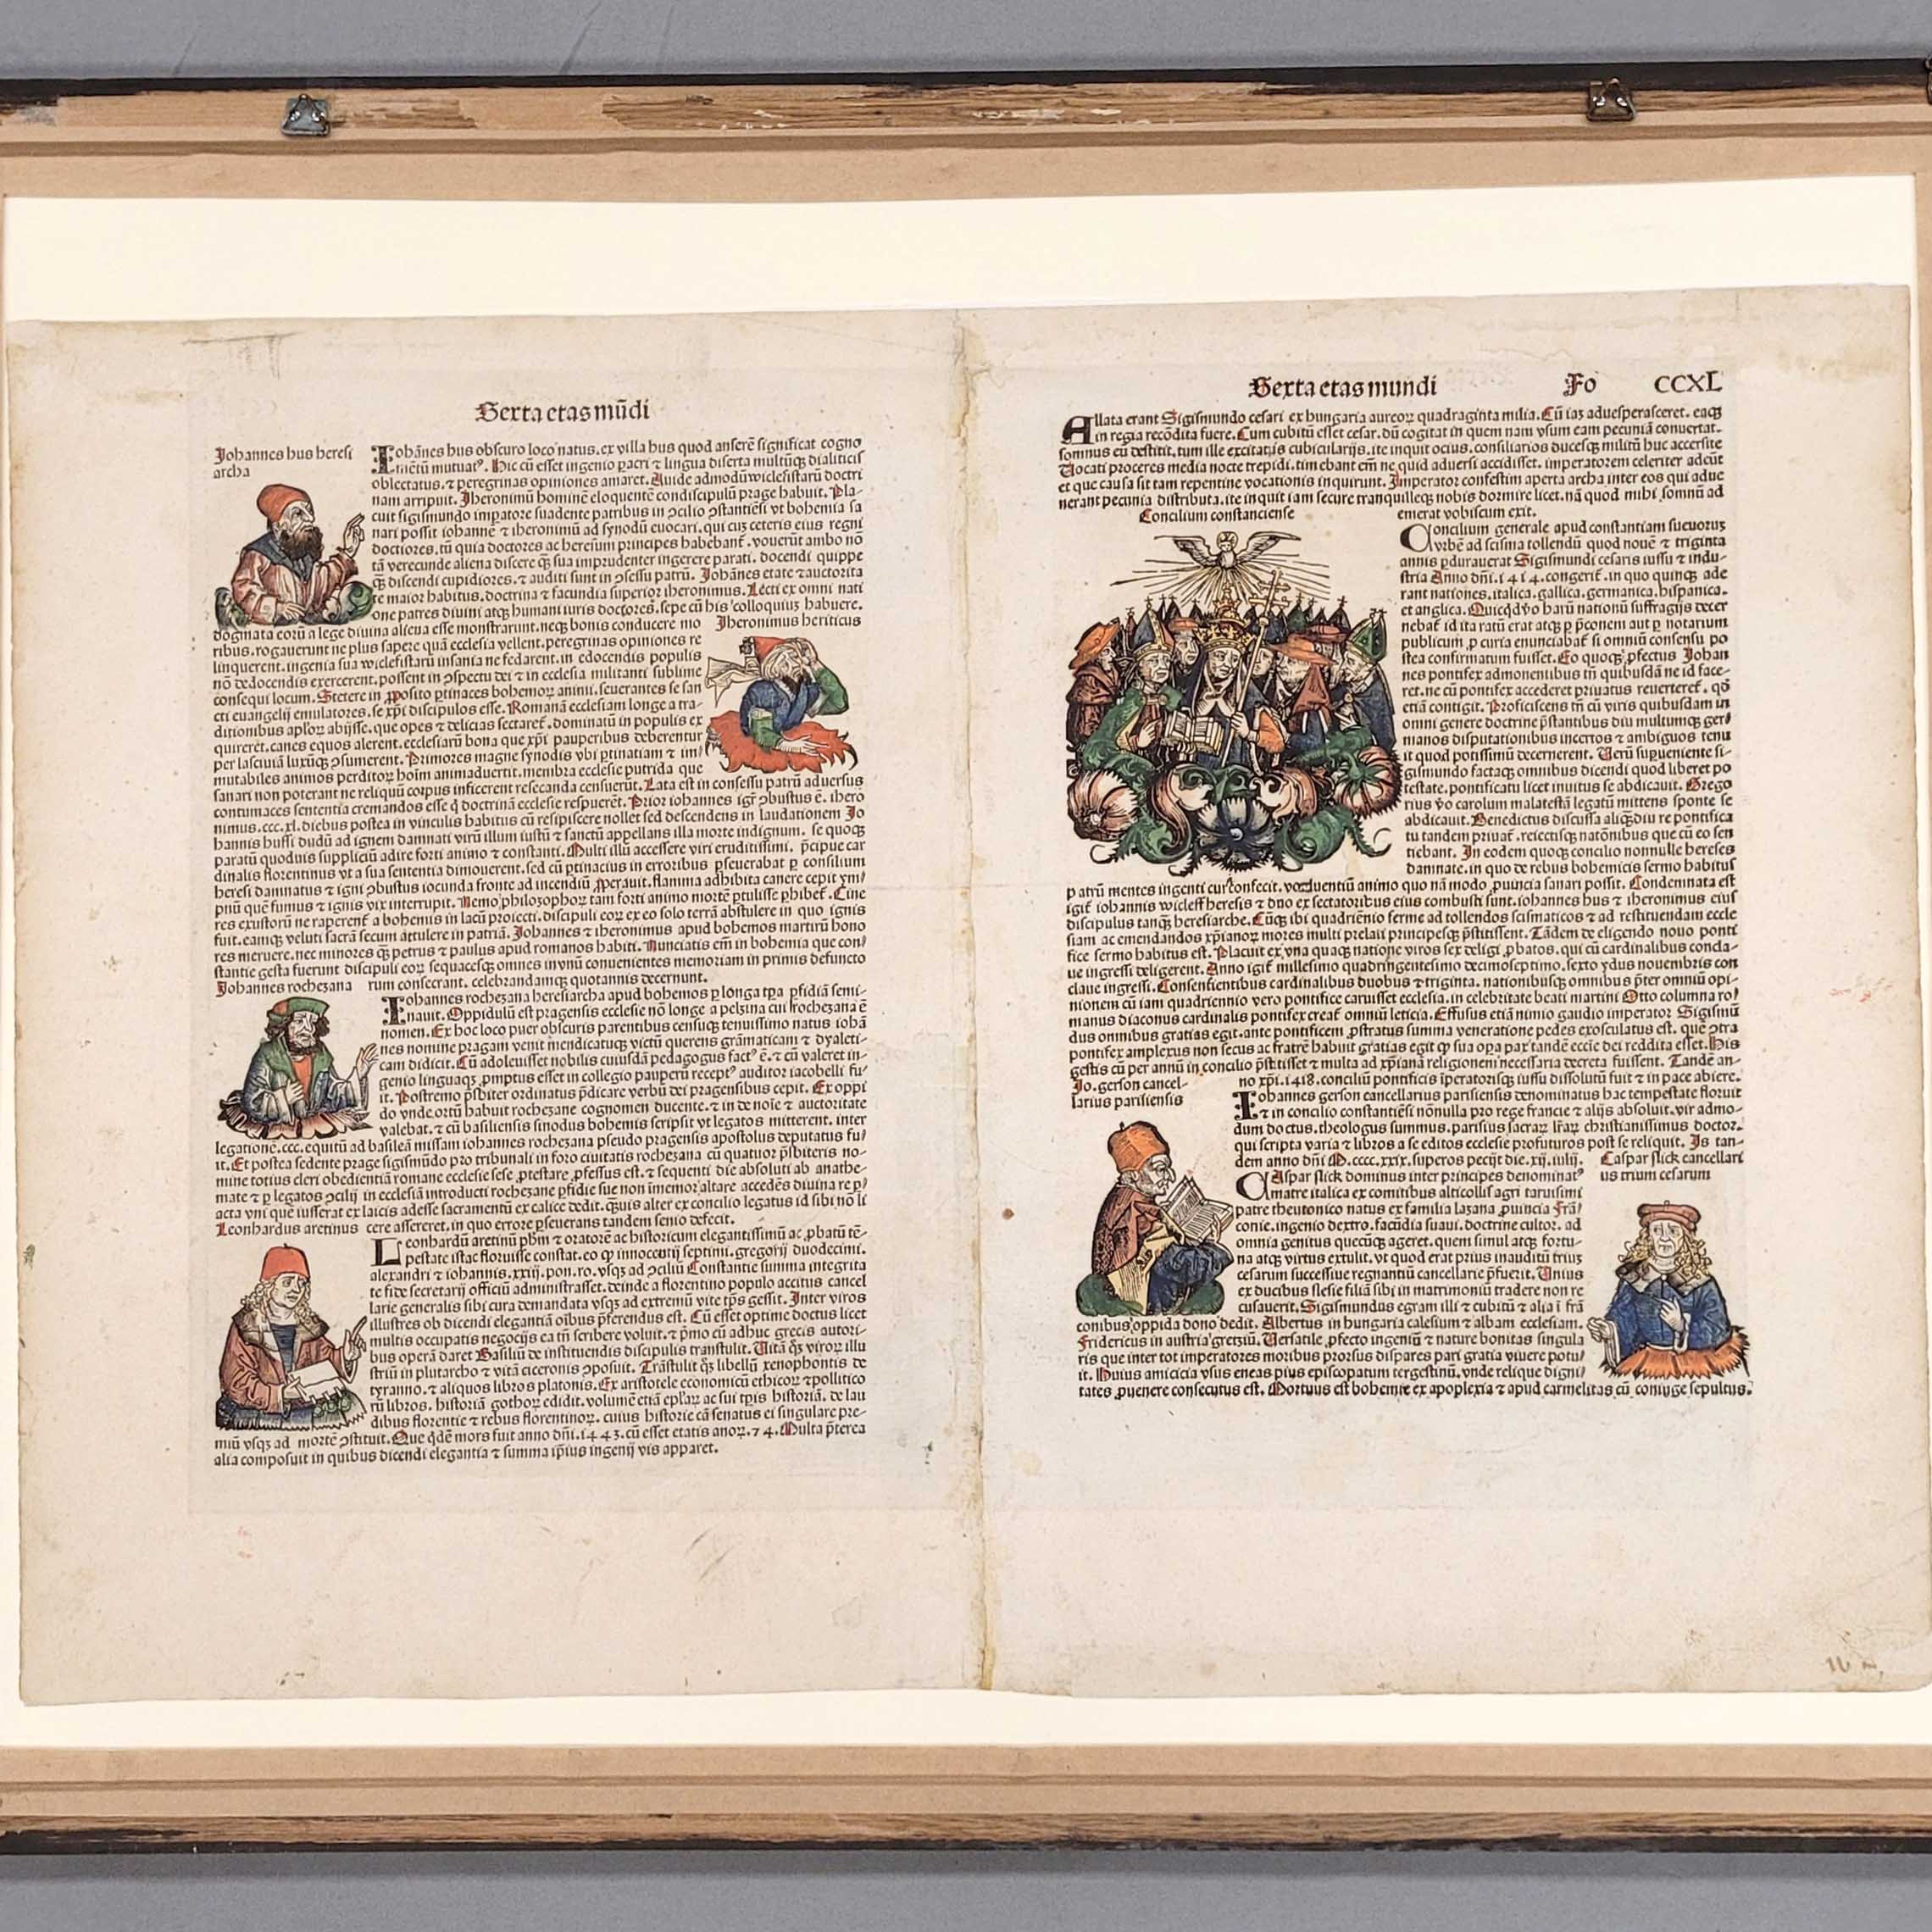 Sexta etas mūdi
Johannes hus heresi
archa
Iohānes hus obscuro loco natus. ex villa hus quod anserē significat cogno
mētū mutuatꝰ. Hic cū esset ingenio ꝑacri ⁊ lingua diserta multūqꝫ dialiticis
oblectatus. ⁊ peregrinas opiniones amaret. Auide admodū wiclefistarū doctri
nam arripuit. Jheronimū hominē eloquentē condiscipulū prage habuit. Pla-
cuit sigismundo imꝑatore suadente patribus in ↄcilio ↄstantiēsi vt bohemia sa
nari possit iohannē ⁊ iheronimū ad synodū euocari. qui cuꝫ ceteris eius regni
doctiores. tū quia doctores ac heresium principes habebanť. vouerūt ambo nō
tā verecunde aliena discere qꝫ sua imprudenter ingerere parati. docendi quippe
qꝫ discendi cupidiores. ⁊ auditi sunt in ↄsessu patrū. Johānes etate ⁊ auctorita
te maior habitus. doctrina ⁊ facundia superior iheronimus. Lecti ex omni nati
one patres diuini atqꝫ humani iuris doctores. sepe cū his colloquiuꝫ habuere.
dogmata eorū a lege diuina aliena esse monstrarunt. neqꝫ bonis conducere mo
Jheronimus heriticus
ribus. rogauerunt ne plus sapere quā ecclesia vellent. peregrinas opiniones re
linquerent. ingenia sua wiclefistarū insania ne fedarent. in edocendis populis
nō dedocendis exercerent. possent in ↄspectu dei ⁊ in ecclesia militanti sublime
consequi locum. Stetere in ꝓposito ꝑtinaces bohemoꝝ animi. seuerantes se san
cti euangelij emulatores. se xp̄i discipulos esse. Romanā ecclesiam longe a tra-
ditionibus apl'oꝝ abijsse. que opes ⁊ delicias sectareť. dominatū in populis ex
quireret. canes equos alerent. ecclesiarū bona que xp̄i pauperibus deberentur
per lasciuiā luxūqꝫ ↄsumerent. Primores magne synodis vbi ꝑtinatiam ⁊ im
mutabiles animos perditoꝝ hoīm animaduertit. membra ecclesie putrida que
sanari non poterant ne reliquū corpus inficerent resecanda censuerūt. Lata est in consessu patrū aduersus
contumaces sententia cremandos esse q̄ doctrinā ecclesie respuerēt. Prior iohannes igr̄ ↄbustus ē. ihero
nimus. ccc. xl. diebus postea in vinculis habitus cū resipiscere nollet sed descendens in laudationem Jo
hannis hussi dudū ad ignem damnati virū illum iustū ⁊ sanctū appellans illa morte indignum. se quoqꝫ
paratū quoduis suppliciū adire forti animo ⁊ constanti. Multi illū accessere viri eruditissimi. p̄cipue car
dinalis florentinus vt a sua sententia dimouerent. sed cū ꝑtinacius in erroribus ꝑseuerabat ꝑ consilium
heresi damnatus ⁊ igni ↄbustus iocunda fronte ad incendiū ꝓperauit. flamma adhibita canere cepit ym
pnū quē fumus ⁊ ignis vix interrupit. Nemo philozophoꝝ tam forti animo mortē ꝑtulisse phibeť. Cine
res exustorū ne raperenť a bohemis in lacū proiecti. discipuli eoꝝ ex eo solo terrā abstulere in quo ignis
fuit. eamqꝫ veluti sacrā secum attulere in patriā. Johannes ⁊ iheronimus apud bohemos martirū hono
res meruere. nec minores qꝫ petrus ⁊ paulus apud romanos habiti. Nunciatis em̄ in bohemia que con
stantie gesta fuerunt discipuli eoꝝ sequacesqꝫ omnes in vnū conuenientes memoriam in primis defuncto
Johannes rochezana
rum consecrant. celebrandamqꝫ quotannis decernunt.
Iohannes rochezana heresiarcha apud bohemos ꝑ longa tꝑa ꝑfidiā semi-
nauit. Oppidulū est pragensis ecclesie nō longe a pelzina cui rochezana ē
nomen. Ex hoc loco puer obscuris parentibus censuqꝫ tenuissimo natus iohā
nes nomine pragam venit mendicatuqꝫ victū querens grāmaticam ⁊ dyaleti-
cam didicit. Cū adoleuisset nobilis cuiusdā pedagogus factꝰ ē. ⁊ cū valeret in-
genio linguaqꝫ ꝓmptus esset in collegio pauperū receptꝰ auditor iacobelli fu-
it. Postremo p̄sbiter ordinatus p̄dicare verbū dei pragensibus cepit. Ex oppi
do vnde ortū habuit rochezane cognomen ducente. ⁊ in de noīe ⁊ auctoritate
valebat. ⁊ cū basiliensis sinodus bohemis scripsit vt legatos mitterent. inter
legationē. ccc. equitū ad basileā missam iohannes rochezana pseudo pragensis apostolus deputatus fu
it. Et postea sedente prage sigismūdo pro tribunali in foro ciuitatis rochezana cū quatuor p̄sbiteris no-
mine totius cleri obedientiā romane ecclesie sese ꝓtestare ꝓfessus est. ⁊ sequenti die absoluti ab anathe-
mate ⁊ ꝑ legatos ↄcilij in ecclesiā introducti rochezane ꝑfidie sue non īmemor altare accedēs diuina re ꝑ
acta vni que iusserat ex laicis adesse sacramentū ex calice dedit. qꝫuis alter ex concilio legatus id sibi nō li
Leonhardus aretinus
cere assereret. in quo errore ꝑseuerans tandem senio defecit.
Leonhardū aretinū phm̄ ⁊ oratorē ac historicum elegantissimū ac ꝓbatū tē-
pestate istac floruisse constat. eo qꝫ innocentij septimi. gregorij duodecimi.
alexandri ⁊ iohannis. xxiij. pon. ro. vsqꝫ ad ↄciliū Constantie summa integrita
te fide secretarij officiū administrasset. deinde a florentino populo accitus cancel
larie generalis sibi cura demandata vsqꝫ ad extremū vite tp̄s gessit. Inter viros
illustres ob dicendi elegantiā oībus p̄ferendus est. Cū esset optime doctus licet
multis occupatis negocijs ea tn̄ scribere voluit. ⁊ p̄mo cū adhuc grecis autori-
bus operā daret Basiliū de instituendis discipulis transtulit. Uitā qꝫ viroꝝ illu
striū in plutarcho ⁊ vitā ciceronis ↄposuit. Trāstulit qꝫ libellū xenophontis de
tyranno. ⁊ aliquos libros platonis. Ex aristotele economicū ethicoꝝ ⁊ pollitico
rū libros. historiā gothoꝝ edidit. volumē etiā epl'aꝝ ac sui tp̄is historiā. de lau
dibus florentie ⁊ rebus florentinoꝝ. cuius historie cā senatus ei singulare pre-
miū vsqꝫ ad mortē ↄstituit. Que qdē mors fuit anno dn̄i. 1443. cū esset etatis anoꝝ. 74. Multa p̄terea
alia composuit in quibus dicendi elegantia ⁊ summa ip̄ius ingenij vis apparet.
Sexta etas mundi Fo CCXL
Allata erant Sigismundo cesari ex hungaria aureoꝝ quadraginta milia. Cū iaꝫ aduesperasceret. eaqꝫ
in regia recōdita fuere. Cum cubitū esset cesar. dū cogitat in quem nam vsum eam pecuniā conuertat.
somnus eū destitit. tum ille excitatis cubicularijs. ite inquit ocius. consiliarios ducesqꝫ militū huc accersite
Uocati proceres media nocte trepidi. timebant em̄ ne quid aduersi accidisset. imperatorem celeriter adeūt
et que causa sit tam repentine vocationis inquirunt. Imperator confestim aperta archa inter eos qui adue
nerant pecunia distributa. ite inquit iam secure tranquilleqꝫ nobis dormire licet. nā quod mihi somnū ad
emerat vobiscum exit.
Concilium constanciense
Concilium generale apud constantiam sueuoruꝫ
vrbē ad scisma tollendū quod nouē ⁊ triginta
annis ꝑdurauerat Sigismundi cesaris iussu ⁊ indu-
stria Anno dn̄i. 1414. congeriť. in quo quinqꝫ ade
rant nationes. italica. gallica. germanica. hispanica.
et anglica. Quicqd v̄o harū nationū suffragijs decer
nebať id ita ratū erat atqꝫ ꝑ p̄conem aut ꝑ notarium
publicum ꝓ curia enunciabať si omniū consensu po
stea confirmatum fuisset. Eo quoqꝫ ꝓfectus Johan
nes pontifex admonentibus tn̄ quibusdā ne id face-
ret. ne cū pontifex accederet priuatus reuertereť. qd̄
etiā contigit. Proficiscens tn̄ cū viris quibusdam in
omni genere doctrine p̄stantibus diu multumqꝫ ger
manos disputationibus incertos ⁊ ambiguos tenu
it quod potissimū decernerent. Uerū suꝑueniente si-
gismundo factaqꝫ omnibus dicendi quod liberet po
testate. pontificatu licet inuitus se abdicauit. Grego
rius v̄o carolum malatestā legatū mittens sponte se
abdicauit. Benedictus discussa aliqꝫdiu re pontifica
tu tandem priuať. reiectisqꝫ natōnibus que cū eo sen
tiebant. In eodem quoqꝫ concilio nonnulle hereses
damnate. in quo de rebus bohemicis sermo habitus
patrū mentes ingenti cur confecit. voluentiū animo quo nā modo ꝓuincia sanari possit. Condemnata est
igiť iohannis wicleff heresis ⁊ duo ex sectatoribus eius combusti sunt. iohannes hus ⁊ iheronimus eius
discipulus tanqꝫ heresiarche. Cūqꝫ ibi quadriēnio ferme ad tollendos scismaticos ⁊ ad restituendam eccle
siam ac emendandos xp̄ianoꝝ mores multi prelati principesqꝫ p̄stitissent. Tādem de eligendo nouo ponti
fice sermo habitus est. Placuit ex vna quaqꝫ natione viros sex deligi ꝓbatos. qui cū cardinalibus concla-
ue ingressi deligerent. Anno igiť millesimo quadringentesimo decimoseptimo. sexto ydus nouembris con
claue ingressi. Consentientibus cardinalibus duobus ⁊ triginta. nationibusqꝫ omnibus p̄ter omniū opi-
nionem cū iam quadriennio vero pontifice caruisset ecclesia. in celebritate beati martini Otto columna ro
manus diaconus cardinalis pontifex creať omniū leticia. Effusus etiā nimio gaudio imperator Sigismū
dus omnibus gratias egit. ante pontificem ꝓstratus summa veneratione pedes exosculatus est. quē ↄtra
pontifex amplexus non secus ac fratrē habuit gratias egit qꝫ sua oꝑa pax tandē eccīe dei reddita esset. His
gestis cū per annū in concilio p̄stitisset ⁊ multa ad xp̄ianā religionem necessaria decreta fuissent. Tandē an-
no xp̄i. 1418. conciliū pontificis īperatorisqꝫ iussu dissolutū fuit ⁊ in pace abiere.
Jo. gerson cancel-
larius parisiensis
Iohannes gerson cancellarius parisiensis denominatus hac tempestate floruit
⁊ in concilio constantiēsi nōnulla pro rege francie ⁊ alijs absoluit. vir admo-
dum doctus. theologus summus. parisius sacraꝝ lr̄aꝝ christianissimus doctor.
qui scripta varia ⁊ libros a se editos ecclesie profuturos post se reliquit. Is tan-
dem anno dn̄i M. cccc. xxix. superos pecijt die. xij. iulij.
Caspar slick cancellari
us trium cesarum
CAspar slick dominus inter principes denominatꝰ
matre italica ex comitibus alticollis agri taruisimi
patre theutonico natus ex familia lazana ꝓuincia Frā
conie. ingenio dextro. facūdia suaui. doctrine cultor. ad
omnia genitus quecūqꝫ ageret. quem simul atqꝫ fortu-
na atqꝫ virtus extulit. vt quod erat prius inauditū trius
cesarum successiue regnantiū cancellarie p̄fuerit. Unius
ex ducibus slesie filiā sibi in matrimoniū tradere non re
cusauerit. Sigismundus egram illi ⁊ cubitū ⁊ alia ī frā
conibus oppida dono dedit. Albertus in hungaria calesium ⁊ albam ecclesiam.
Fridericus in austria gretziū. Uersatile ꝓfecto ingeniū ⁊ nature bonitas singula
ris que inter tot imperatores moribus prorsus dispares pari gratia viuere potu
it. Huius amicicia vsus eneas pius episcopatum tergestinū. vnde relique digni
tates ꝓuenere consecutus est. Mortuus est bohemie ex apoplexia ⁊ apud carmelitas cū coniuge sepultus.